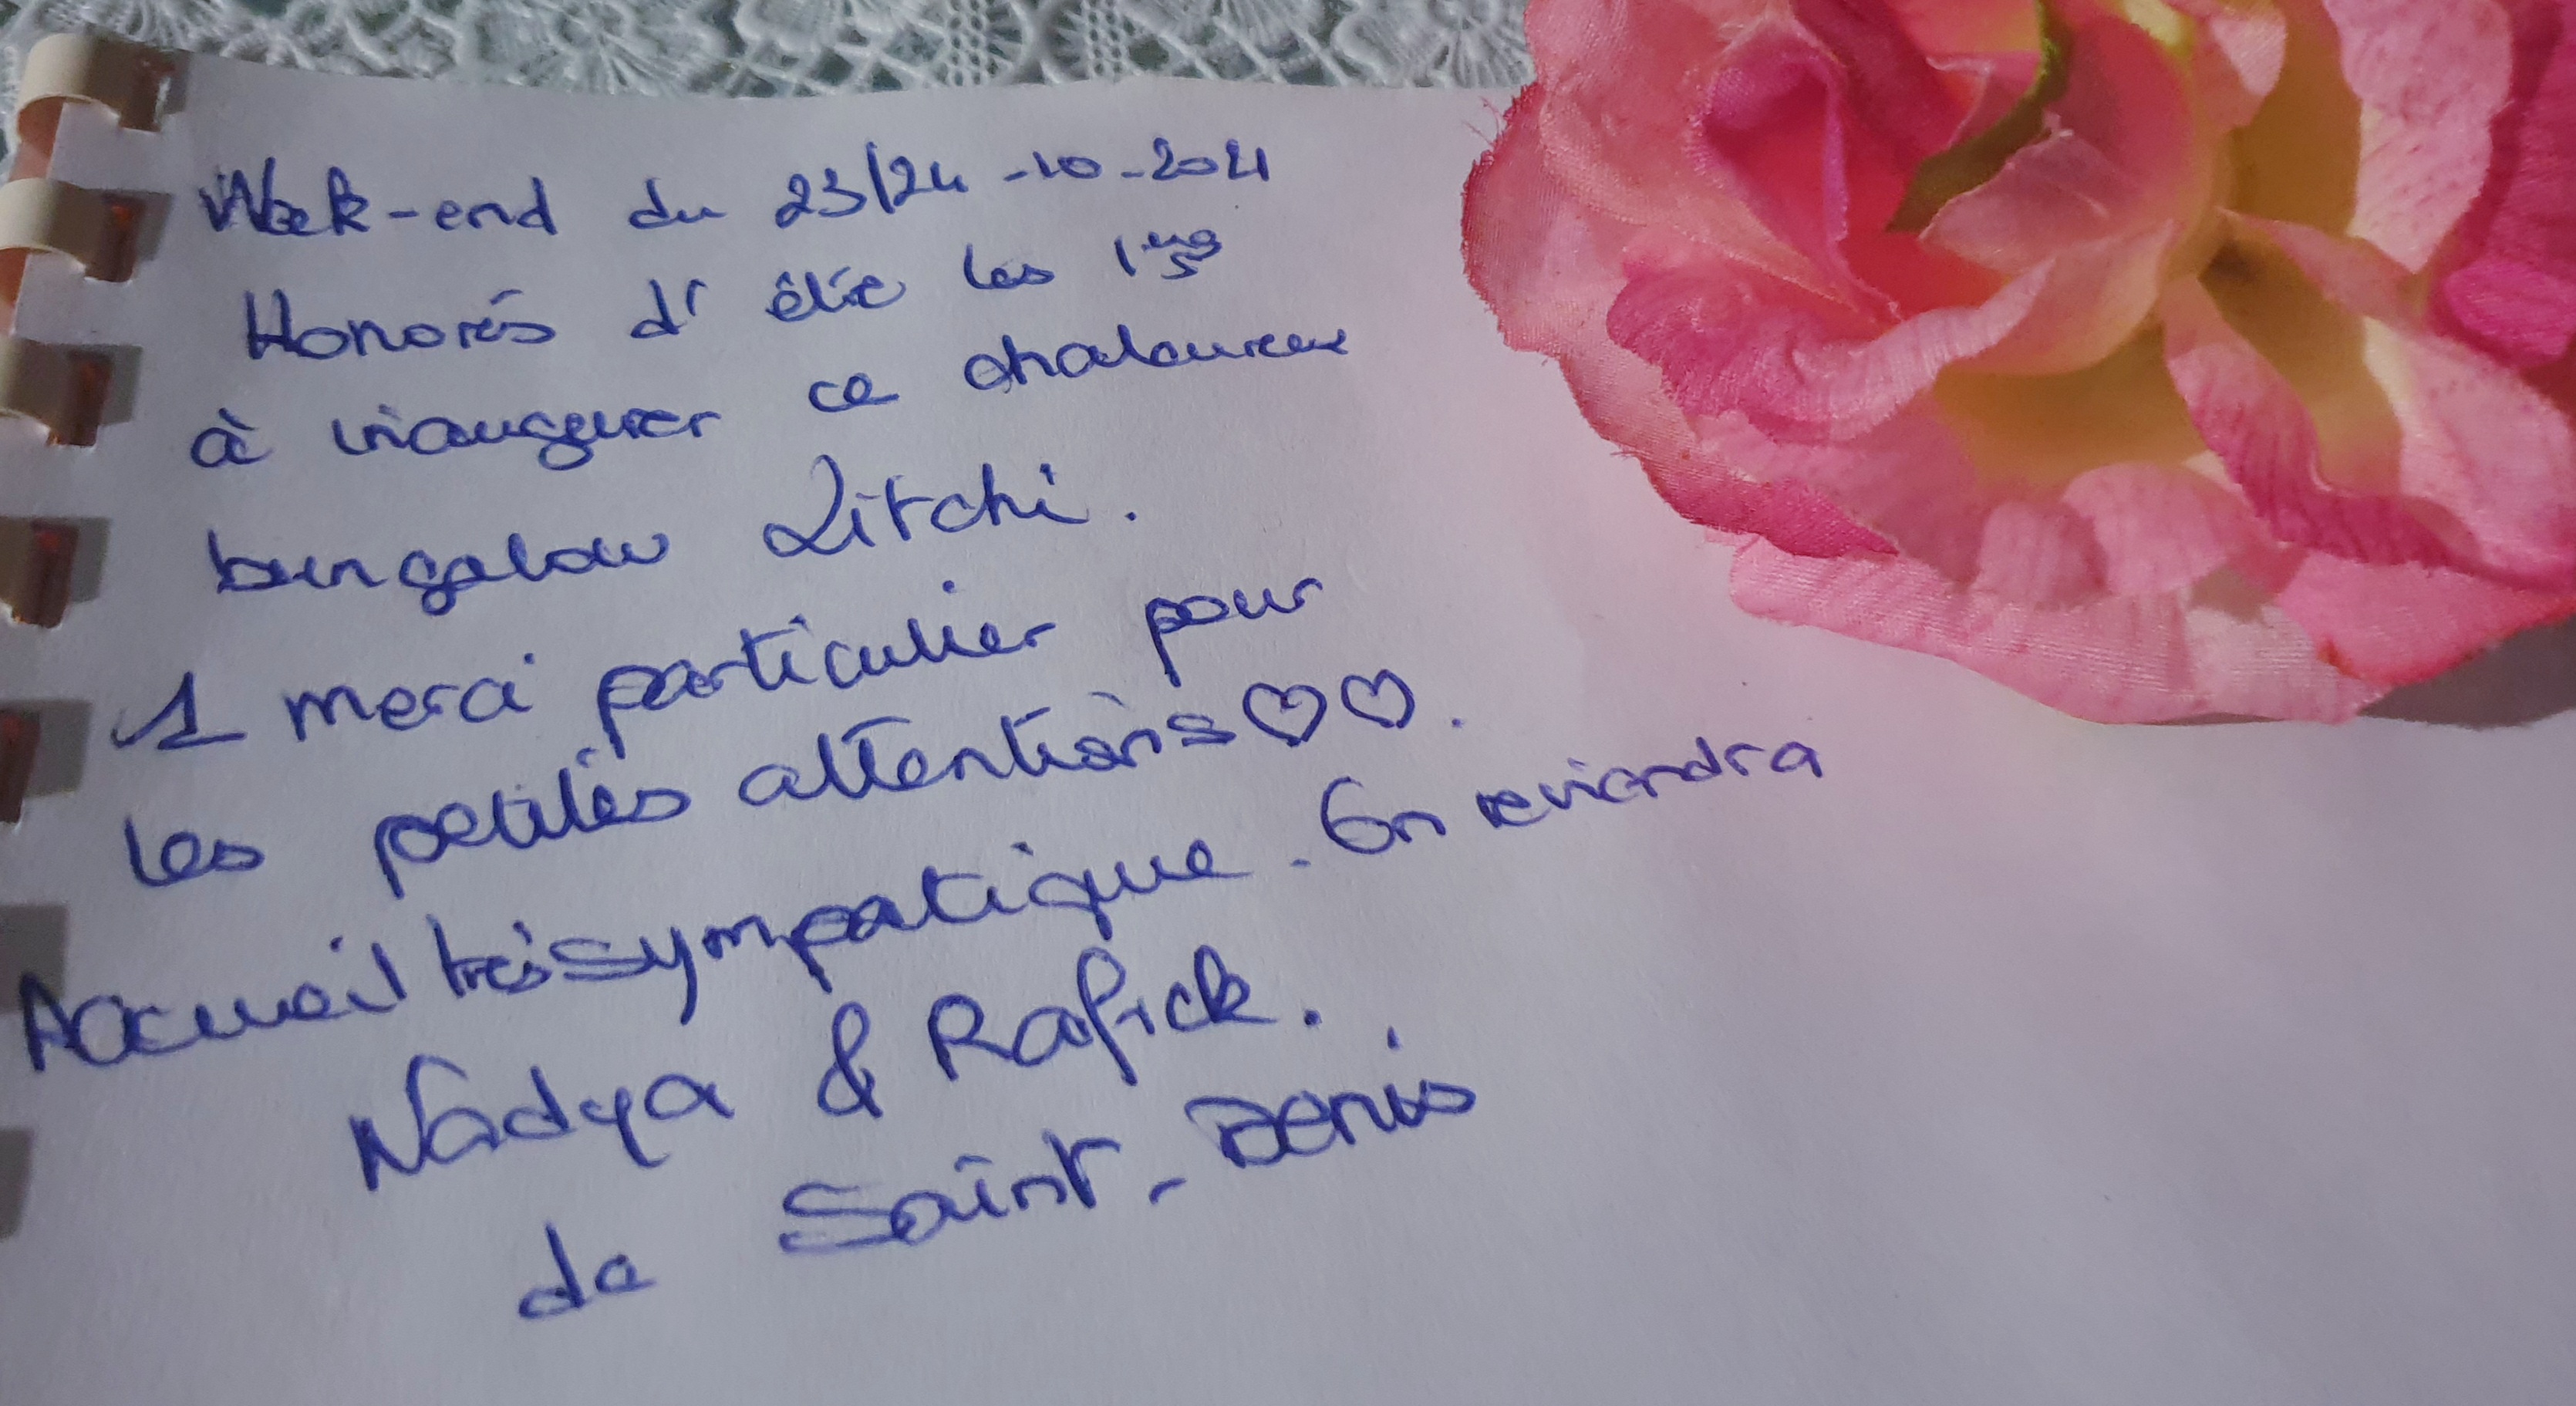 Week-end du 23/24-10-2021
Honorés d'être les 1ers
à inaugurer ce chaleureux
bungalow Litchi.
1 merci particulier pour
les petites attentions♡♡.
Accueil très sympatique. On reviendra
Nadya & Rafick.
de Saint-Denis